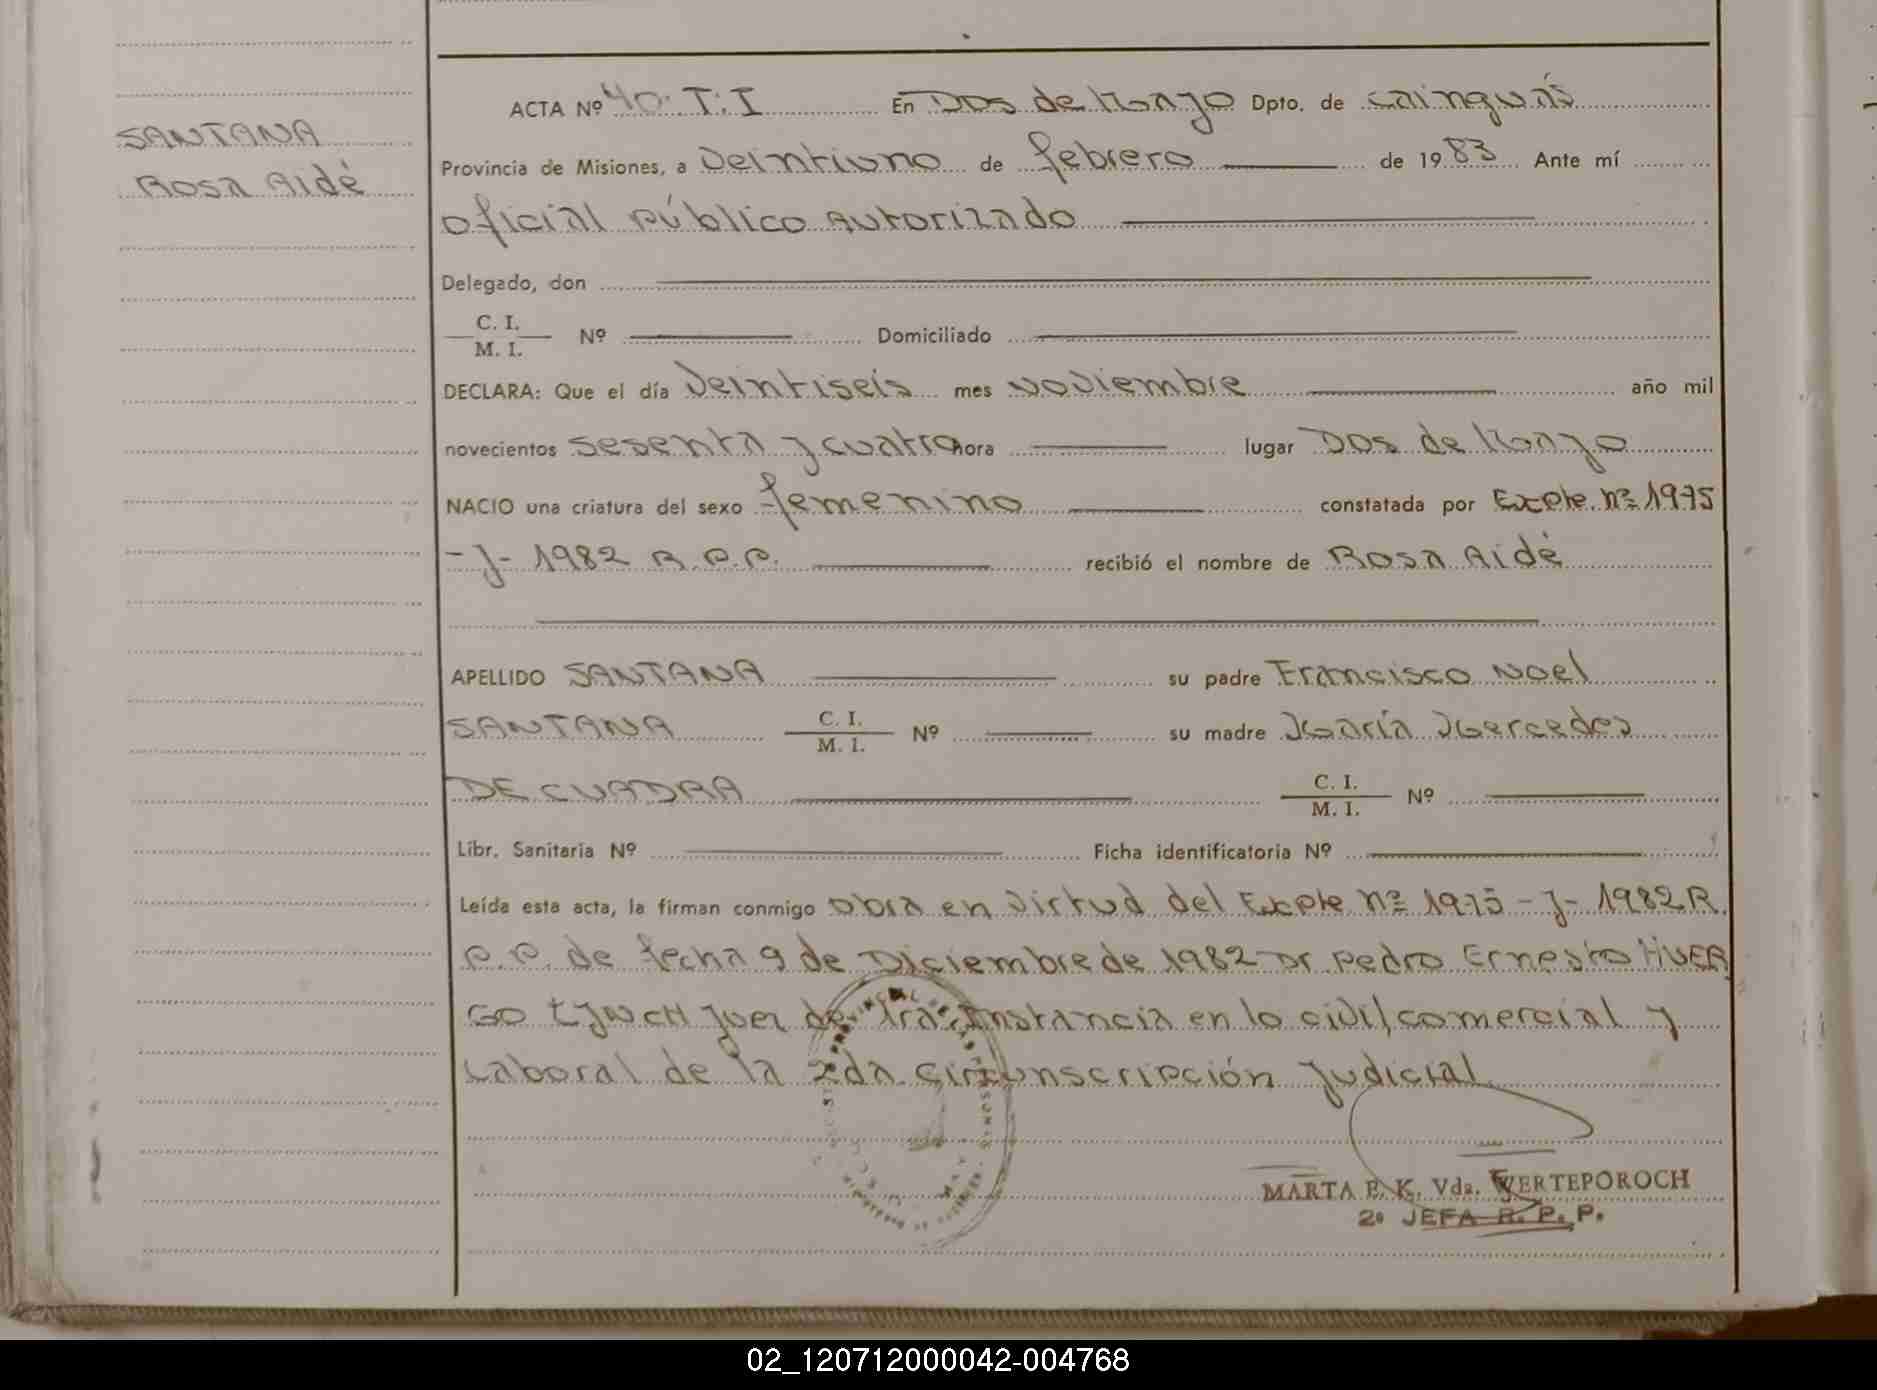 SANTANA
Rosa Aidé
ACTA Nº 40. T: I En Dos de Mayo Dpto. de cainguás
Provincia de Misiones, a Veintiuno de febrero de 1983 Ante mí
oficial Público Autorizado
Delegado, don
C. I.
M. I. Nº Domiciliado
DECLARA: Que el día Veintiseis mes Noviembre año mil
novecientos sesenta y cuatro hora lugar Dos de Mayo
NACIO una criatura del sexo femenino constatada por Expte. Nº 1975
-J- 1982 R.P.P. recibió el nombre de Rosa Aidé
APELLIDO SANTANA su padre Francisco Noel
SANTANA C. I.
M. I. Nº su madre María Mercedes
DE CUADRA C. I.
M. I. Nº
Libr. Sanitaria Nº Ficha identificatoria Nº
Leída esta acta, la firman conmigo obra en virtud del Expte Nº 1975 -J- 1982 R.
P.P. de fecha 9 de Diciembre de 1982 Dr Pedro Ernesto HUER
GO LYNCH Juez de 1ra. Instancia en lo civil, comercial y
Laboral de la 2da. circunscripción Judicial
MARTA E. K. Vda. WERTEPOROCH
2º JEFA R. P. P.
02_120712000042-004768